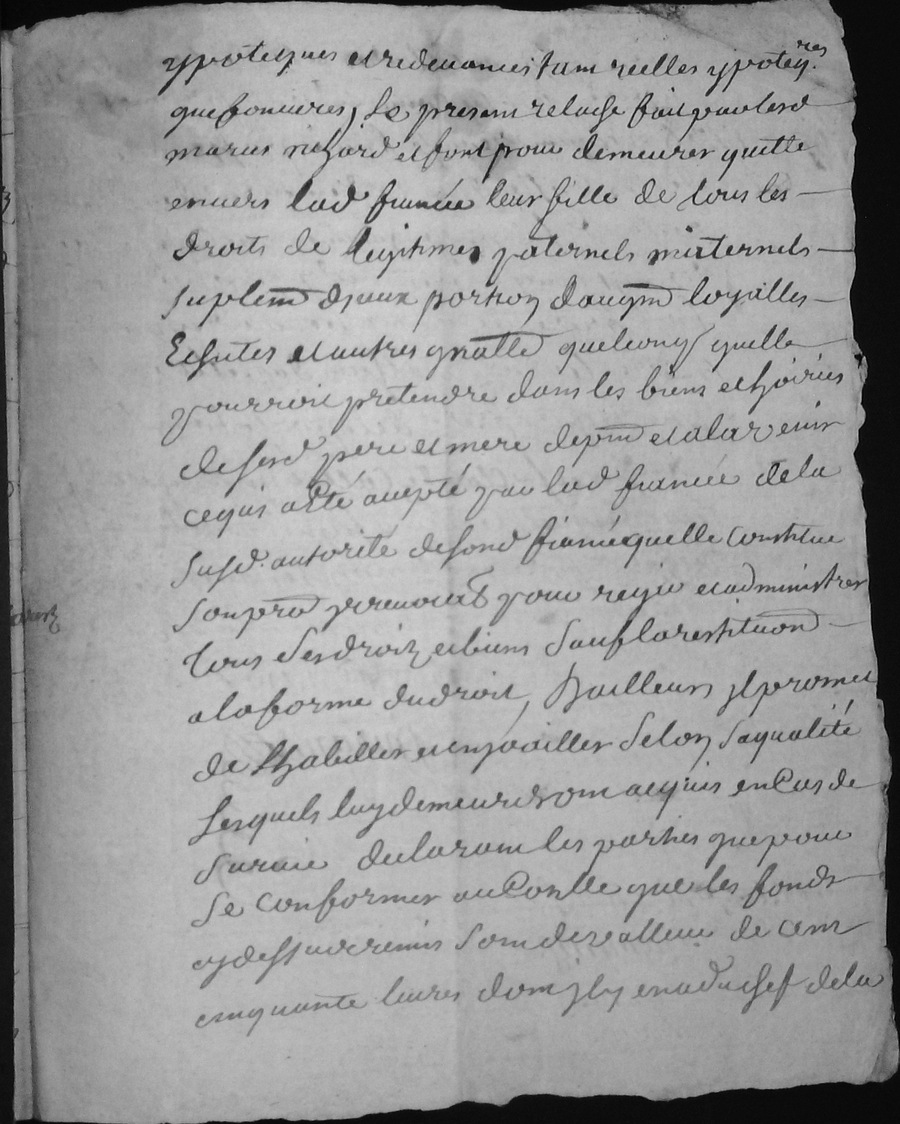 ypoteques et redevances tant reelles ypoteqres
que foncieres, Le present relache fait par lesd
maries richard est fort pour demeurer quitte
envers lad fiancée leur fille de tous les
droits de legitimes paternels maternels
suplem d'jceux portion daugm loyalles
Echutes et autres gnallem quelconq quelle
pourroit pretendre dans les biens et hoiries
de sesd pere et mere de pnt et alavenir
cequi a Eté accepté par lad fiancée de la
susd. autorité de sond fiancé quelle constitue
son pro jrrevocab pour regir et administrer
tous ses droitz et biens sauf la restituon
a la forme du droit, Dailleurs jl promet
de Lhabiller et enjoailler selon sa qualité
Lesquels luy demeureront acquis en Cas de
survie declarant les parties que pour
se conformer au Conlle que les fonds
cy dessus remis sont de valleur de cent
cinquante livres dont jl y en a du chef de la